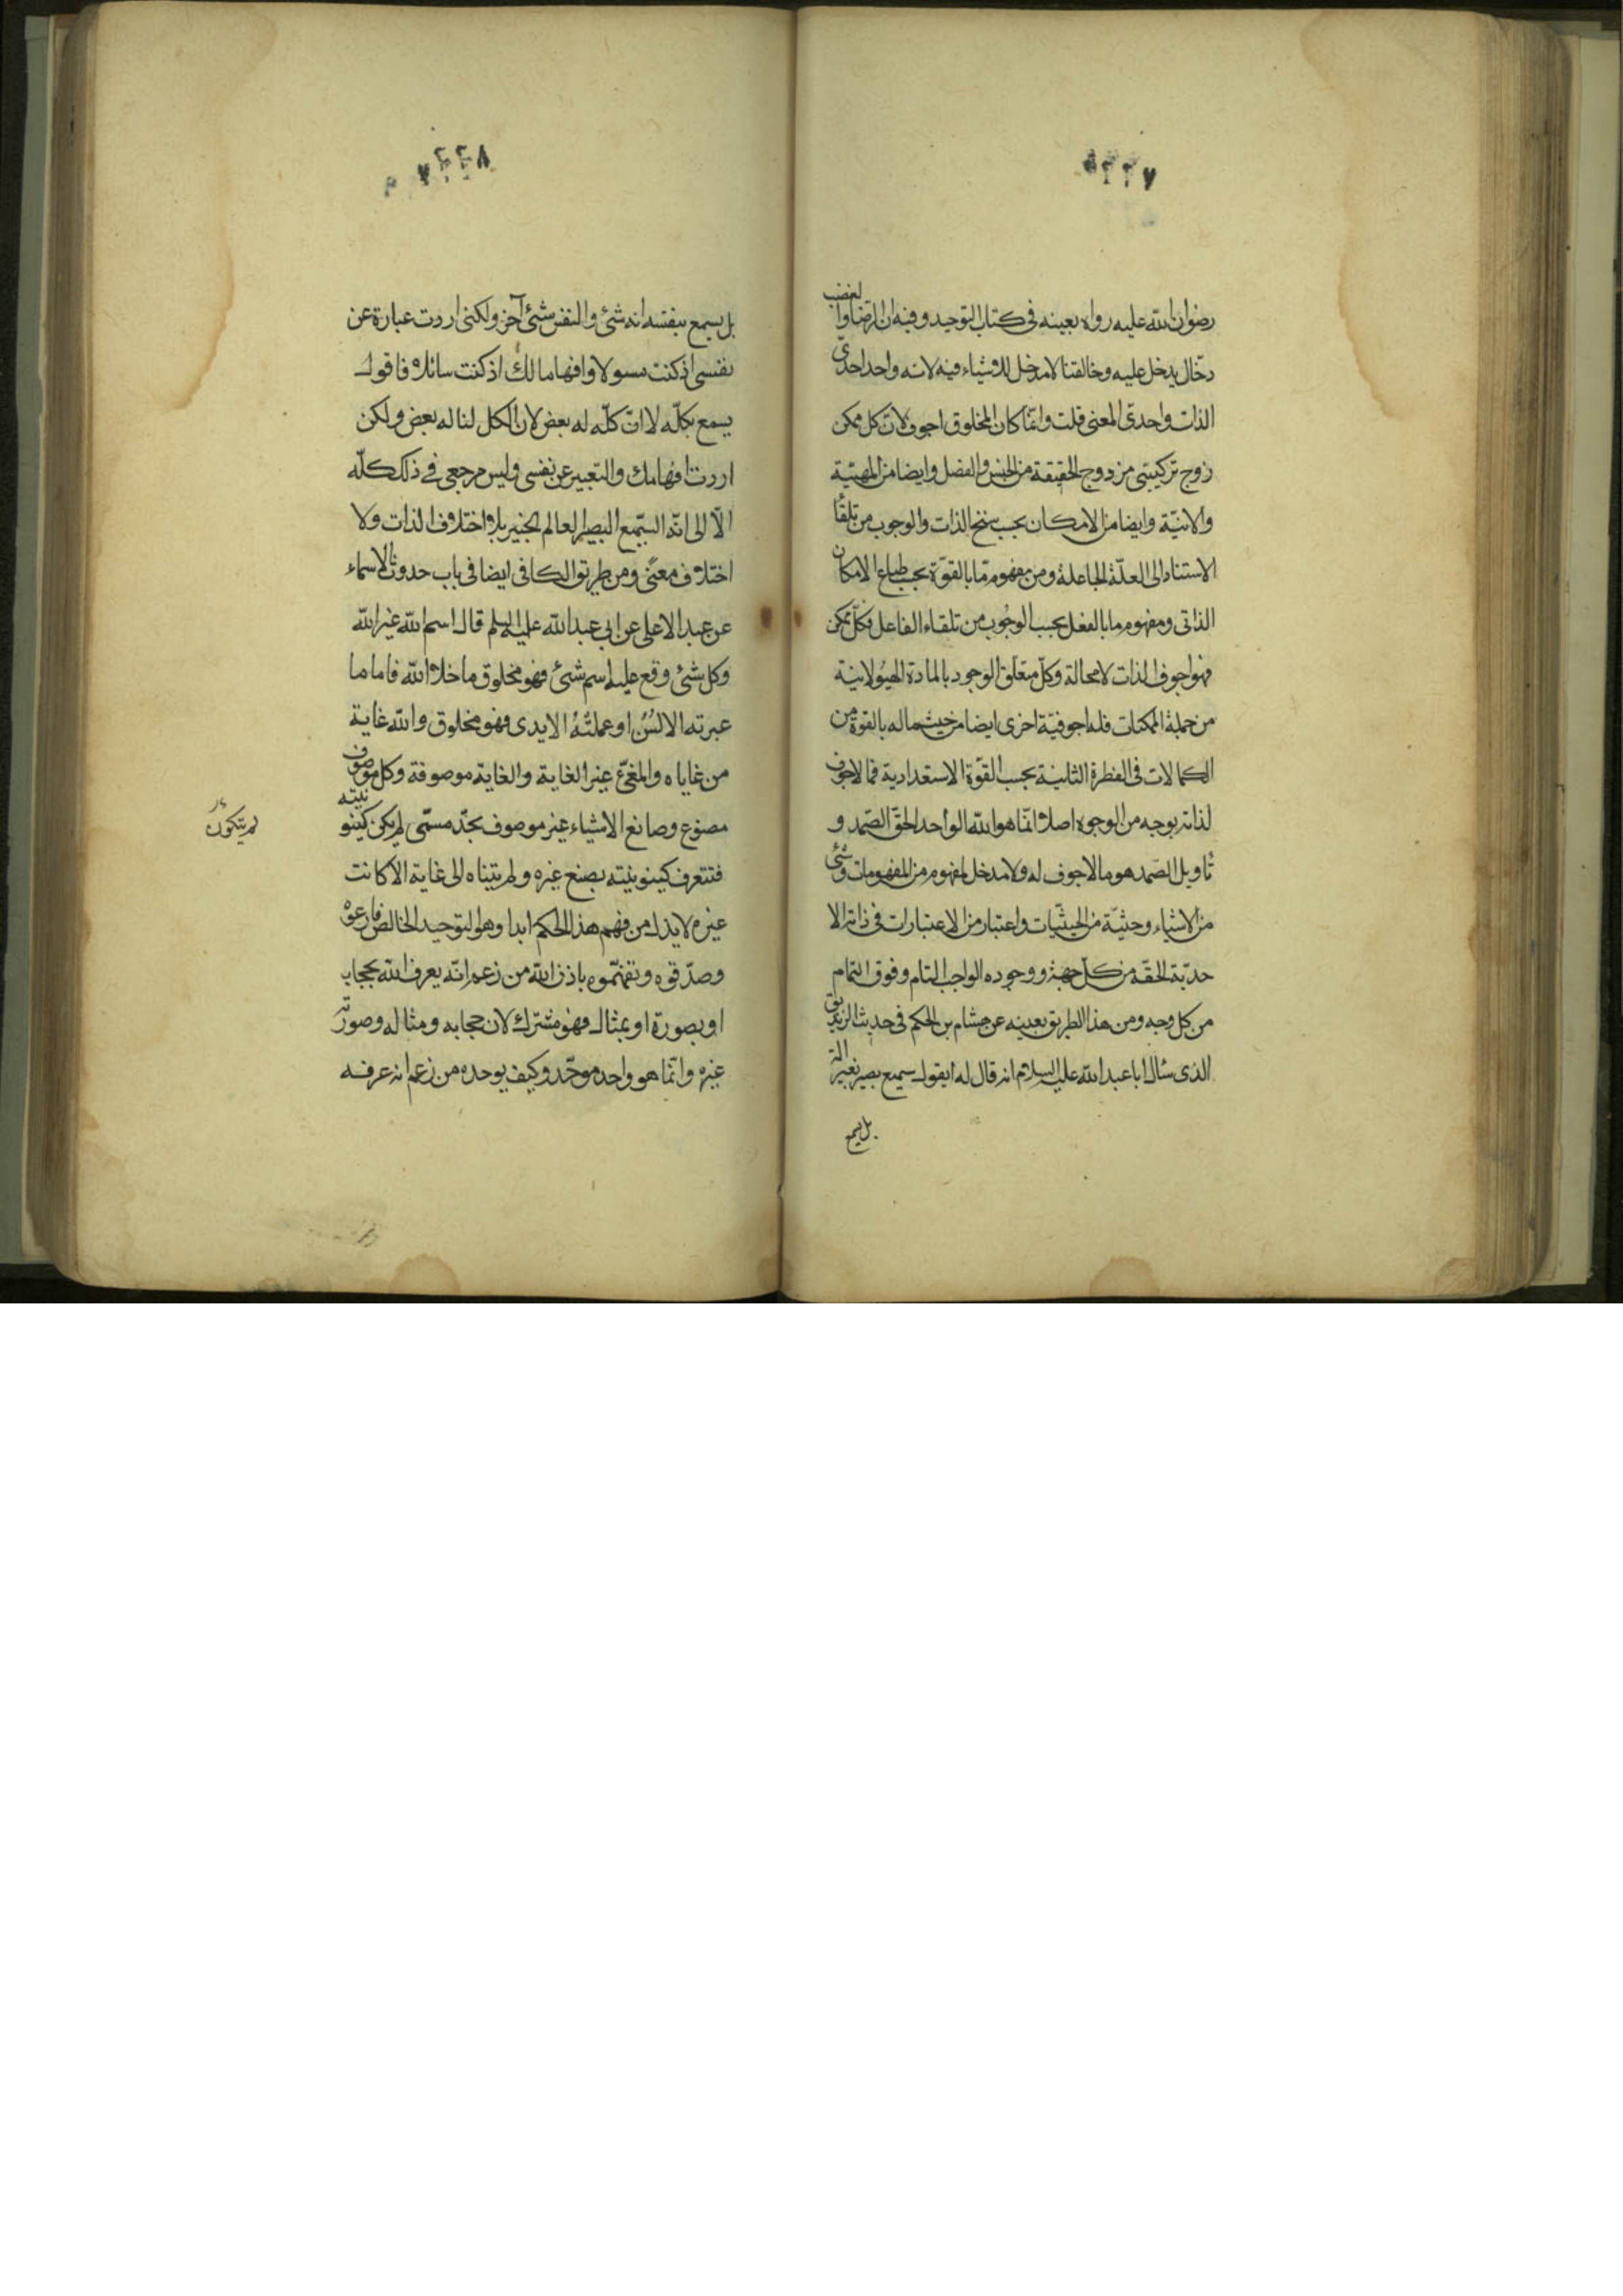 ٢٢٧
رضوان الله عليه رواه بعينه فى كتاب التوحيد وفيه ان الرضا والغضب
دخّال يدخل عليه وخالقنا لا مدخل للاشياء فيه لانه واحد احدىّ
الذات واحدىّ المعنى قلت وانّما كان المخلوق اجوف لانّ كل ممكن
زوج تركيبىّ مزدوج الحقيقة من الجنس والفصل وايضا من المهيّة
والانيّة وايضا من الامكان بحسب سنخ الذات والوجوب من تلقاء
الاستناد الى العلّة الجاعلة ومن مفهوم ما بالقوّة بحسب طباع الامكان
الذاتى ومفهوم ما بالفعل بحسب الوجوب من تلقاء الفاعل فكلّ ممكن
فهو اجوف الذات لا محالة وكلّ متعلّق الوجود بالمادة الهيولانية
من جملة الممكنات فله اجوفيّة اخرى ايضا من حيث ما له بالقوّة من
الكمالات فى الفطرة الثانية بحسب القوّة الاستعدادية فما لا جوف
لذاته بوجه من الوجوه اصلا انّما هو الله الواحد الحقّ الصّمد و
تاويل الصّمد هو ما لا جوف له ولا مدخل لمفهوم من المفهومات وشئ
من الاشياء وحيثيّة من الحيثيّات واعتبار من الاعتبارات فى ذاته الا
حديّة الحقّه من كلّ جهة ووجوده الواجب التام وفوق التمام
من كل وجه ومن هذا الطريق بعينه عن هشام بن الحكم فى حديث الزنديق
الذى سئال ابا عبد الله عليه السلام انه قال له ايقول سميع بصير بغير الة
بل يسمع
٢٢٨
بل يسمع بنفسه انه شئ والنفس شئ آخر ولكنى اردت عبارة عن
نفسى اذ كنت مسولا وافهاما لك اذ كنت سائلا فاقول
يسمع بكلّه لا انّ كلّه له بعض لان الكل لنا له بعض ولكن
اردت افهامك والتعبير عن نفسى وليس مرجعى فى ذلك كلّه
الّا الى انّه السّميع البصير العالم الخبير بلا اختلاف الذات ولا
اختلاف معنى ومن طريق الكافى ايضا فى باب حدوث الاسماء
عن عبد الاعلى عن ابى عبد الله عليه السلم قال اسم الله غير الله
وكل شئ وقع عليه اسم شئ فهو مخلوق ما خلا الله فاما ما
عبرته الالسُنُ او عملتْهُ الايدى فهو مخلوق والله غاية
من غاياه والمغيّى غير الغاية والغاية موصوفة وكل موصوف
مصنوع وصانع الاشياء غير موصوف بحدّ مسمّى لم يكن كينونيته
لم يتكون
فتتعرف كينونيته بصنع غيره ولم يتناه الى غاية الا كانت
غيره لا يذل من فهم هذا الحكم ابدا وهو التوحيد الخالص فارعوه
وصدّقوه وتفهّموه باذن الله من زعم انّه يعرف الله بحجاب
او بصورة او بمثال فهو مشرك لان حجابه ومثاله وصورته
غيره وانّما هو واحد موحّد وكيف يوحده من زعم انه عرفه